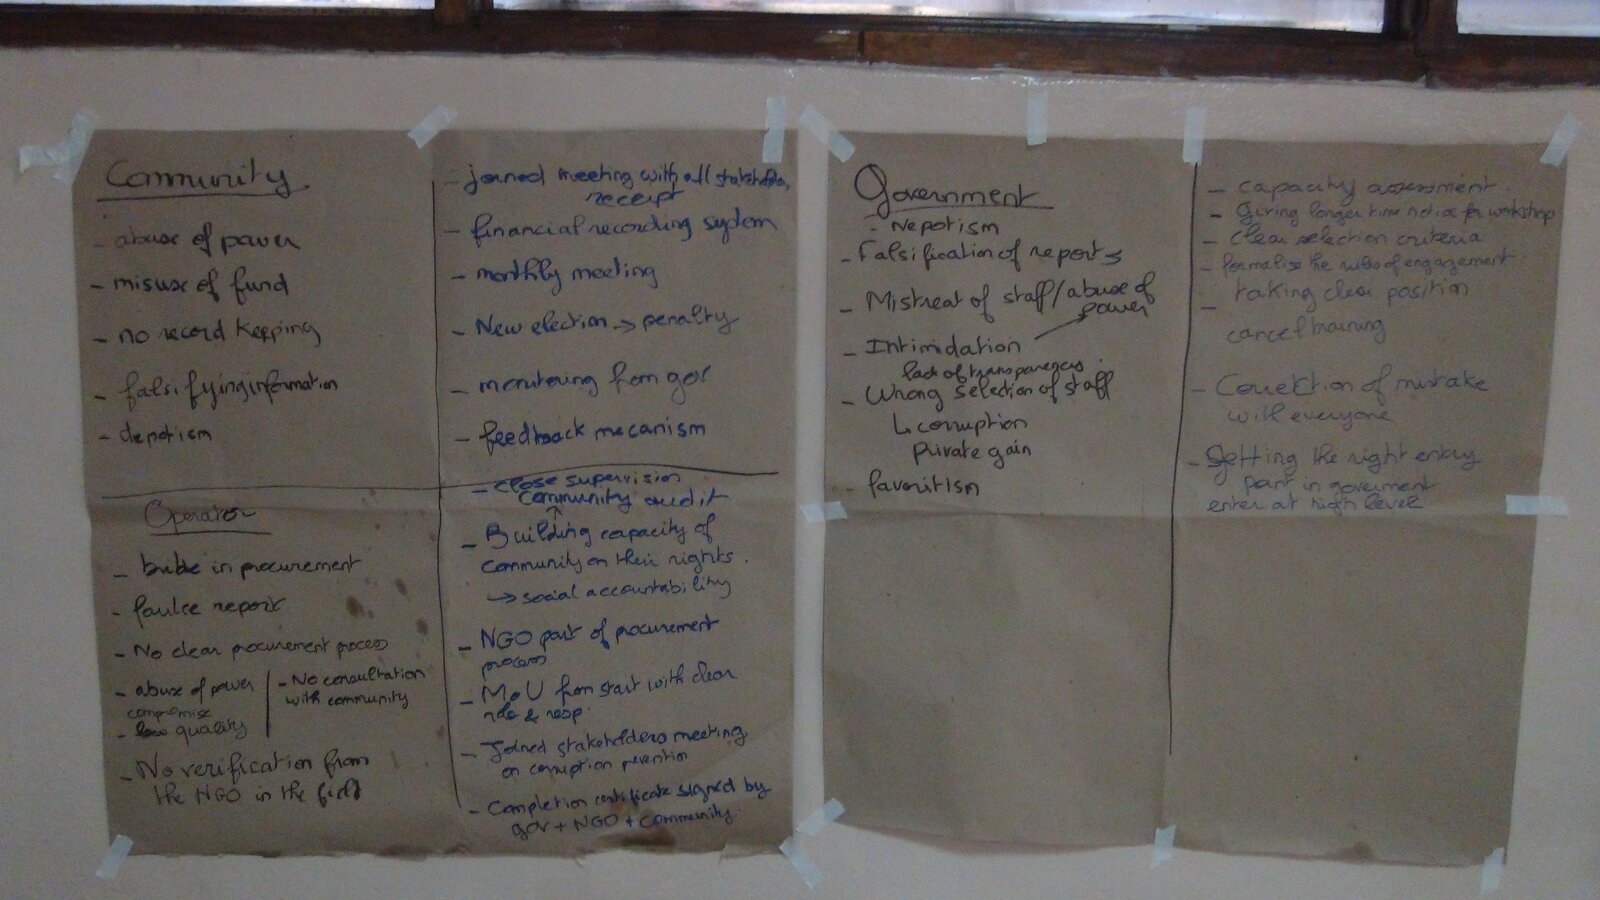 Community
- abuse of power
- misuse of fund
- no record keeping
- falsifying information
- depotism
- joined meeting with all stakeholders
receipt
- financial recording system
- monthly meeting
- New election → penalty
- monitoring from gov
- feedback mecanism
Operator
- bribe in procurement
- faulse report
- No clear procurement process
- abuse of power
compromise
- low quality
- No consultation
with community
- No verification from
the NGO in the field
- close supervision
community audit
- Building capacity of
community on their rights.
→ social accountability
- NGO part of procurement
process
- MoU from start with clear
role & resp.
- Joined stakeholders meeting
on corruption prevention
- Completion certificate signed by
gov + NGO + community.
Government
- Nepotism
- Falsification of reports
- Mistreat of staff/abuse of
power
- Intimidation
lack of transparency
- Wrong selection of staff
↳ corruption
Private gain
- favoritism
- capacity assessment
- Giving longer time notice for workshop
- clear selection criteria
- formalise the rules of engagement
- taking clear position
cancel training
- Correction of mistake
with everyone
- Getting the right entry
point in goverment
enter at high level